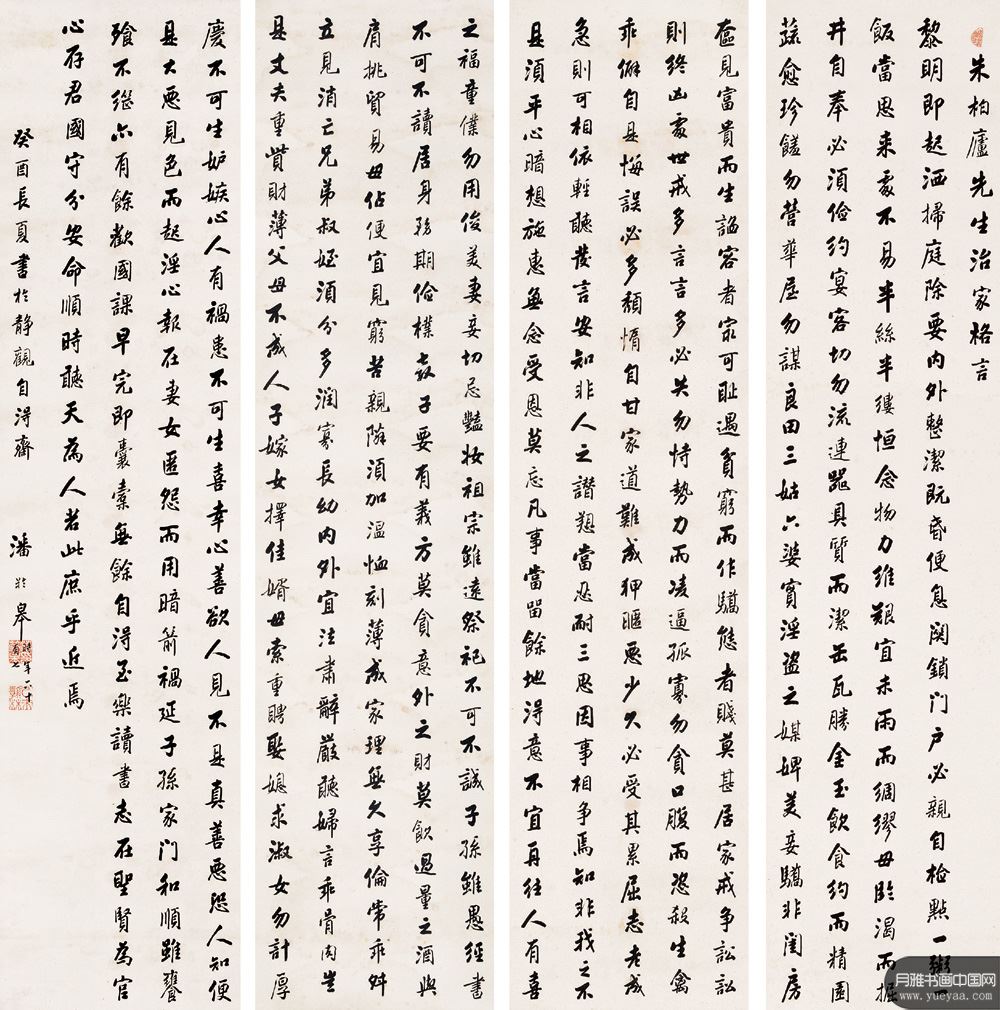 朱柏廬先生治家格言
黎明即起洒掃庭除要內外整潔既昏便息関鎖门户必親自檢點一粥一
飯當思来處不易半絲半縷恒念物力維艱宜未雨而綢繆毋臨渴而掘
井自奉必須儉約宴客切勿流連噐具質而潔缶瓦勝金玉飲食約而精園
蔬愈珍饈勿營華屋勿謀良田三姑六婆實淫盜之媒婢美妾驕非閨房
奩見富貴而生諂容者寂可恥遇貧窮而作驕態者賤莫甚居家戒争訟訟
則終凶處世戒多言言多必失勿恃勢力而凌逼孤寡勿貪口腹而恣殺生禽
乖僻自是悔誤必多頹惰自甘家道難成狎暱惡少久必受其累屈志老成
急則可相依輕聽發言安知非人之譖愬當忍耐三思因事相争焉知非我之不
是須平心暗想施惠無念受恩莫忘凡事當留餘地得意不宜再往人有喜
之福童僕勿用俊美妻妾切忌豔妝祖宗雖遠祭祀不可不誠子孫雖愚經書
不可不讀居身務期儉樸教子要有義方莫貪意外之財莫飲過量之酒與
肩挑貿易毋佔便宜見窮苦親隣須加温恤刻薄成家理無久享倫常乖舛
立見消亡兄弟叔姪須分多潤寡長幼內外宜法肅辭嚴聽婦言乖骨肉豈
是丈夫重貲財薄父母不成人子嫁女擇佳婿毋索重聘娶媳求淑女勿計厚
慶不可生妒嫉心人有禍患不可生喜幸心善欲人見不是真善惡恐人知便
是大惡見色而起淫心報在妻女匿怨而用暗箭禍延子孫家门和順雖饔
飱不繼亦有餘歡國課早完即囊橐無餘自得至樂讀書志在聖賢為官
心存君國守分安命順時聽天為人若此庶乎近焉
癸酉長夏書於静觀自得齋 潘齡皋
月雅书画中国网
www.yueyaa.com